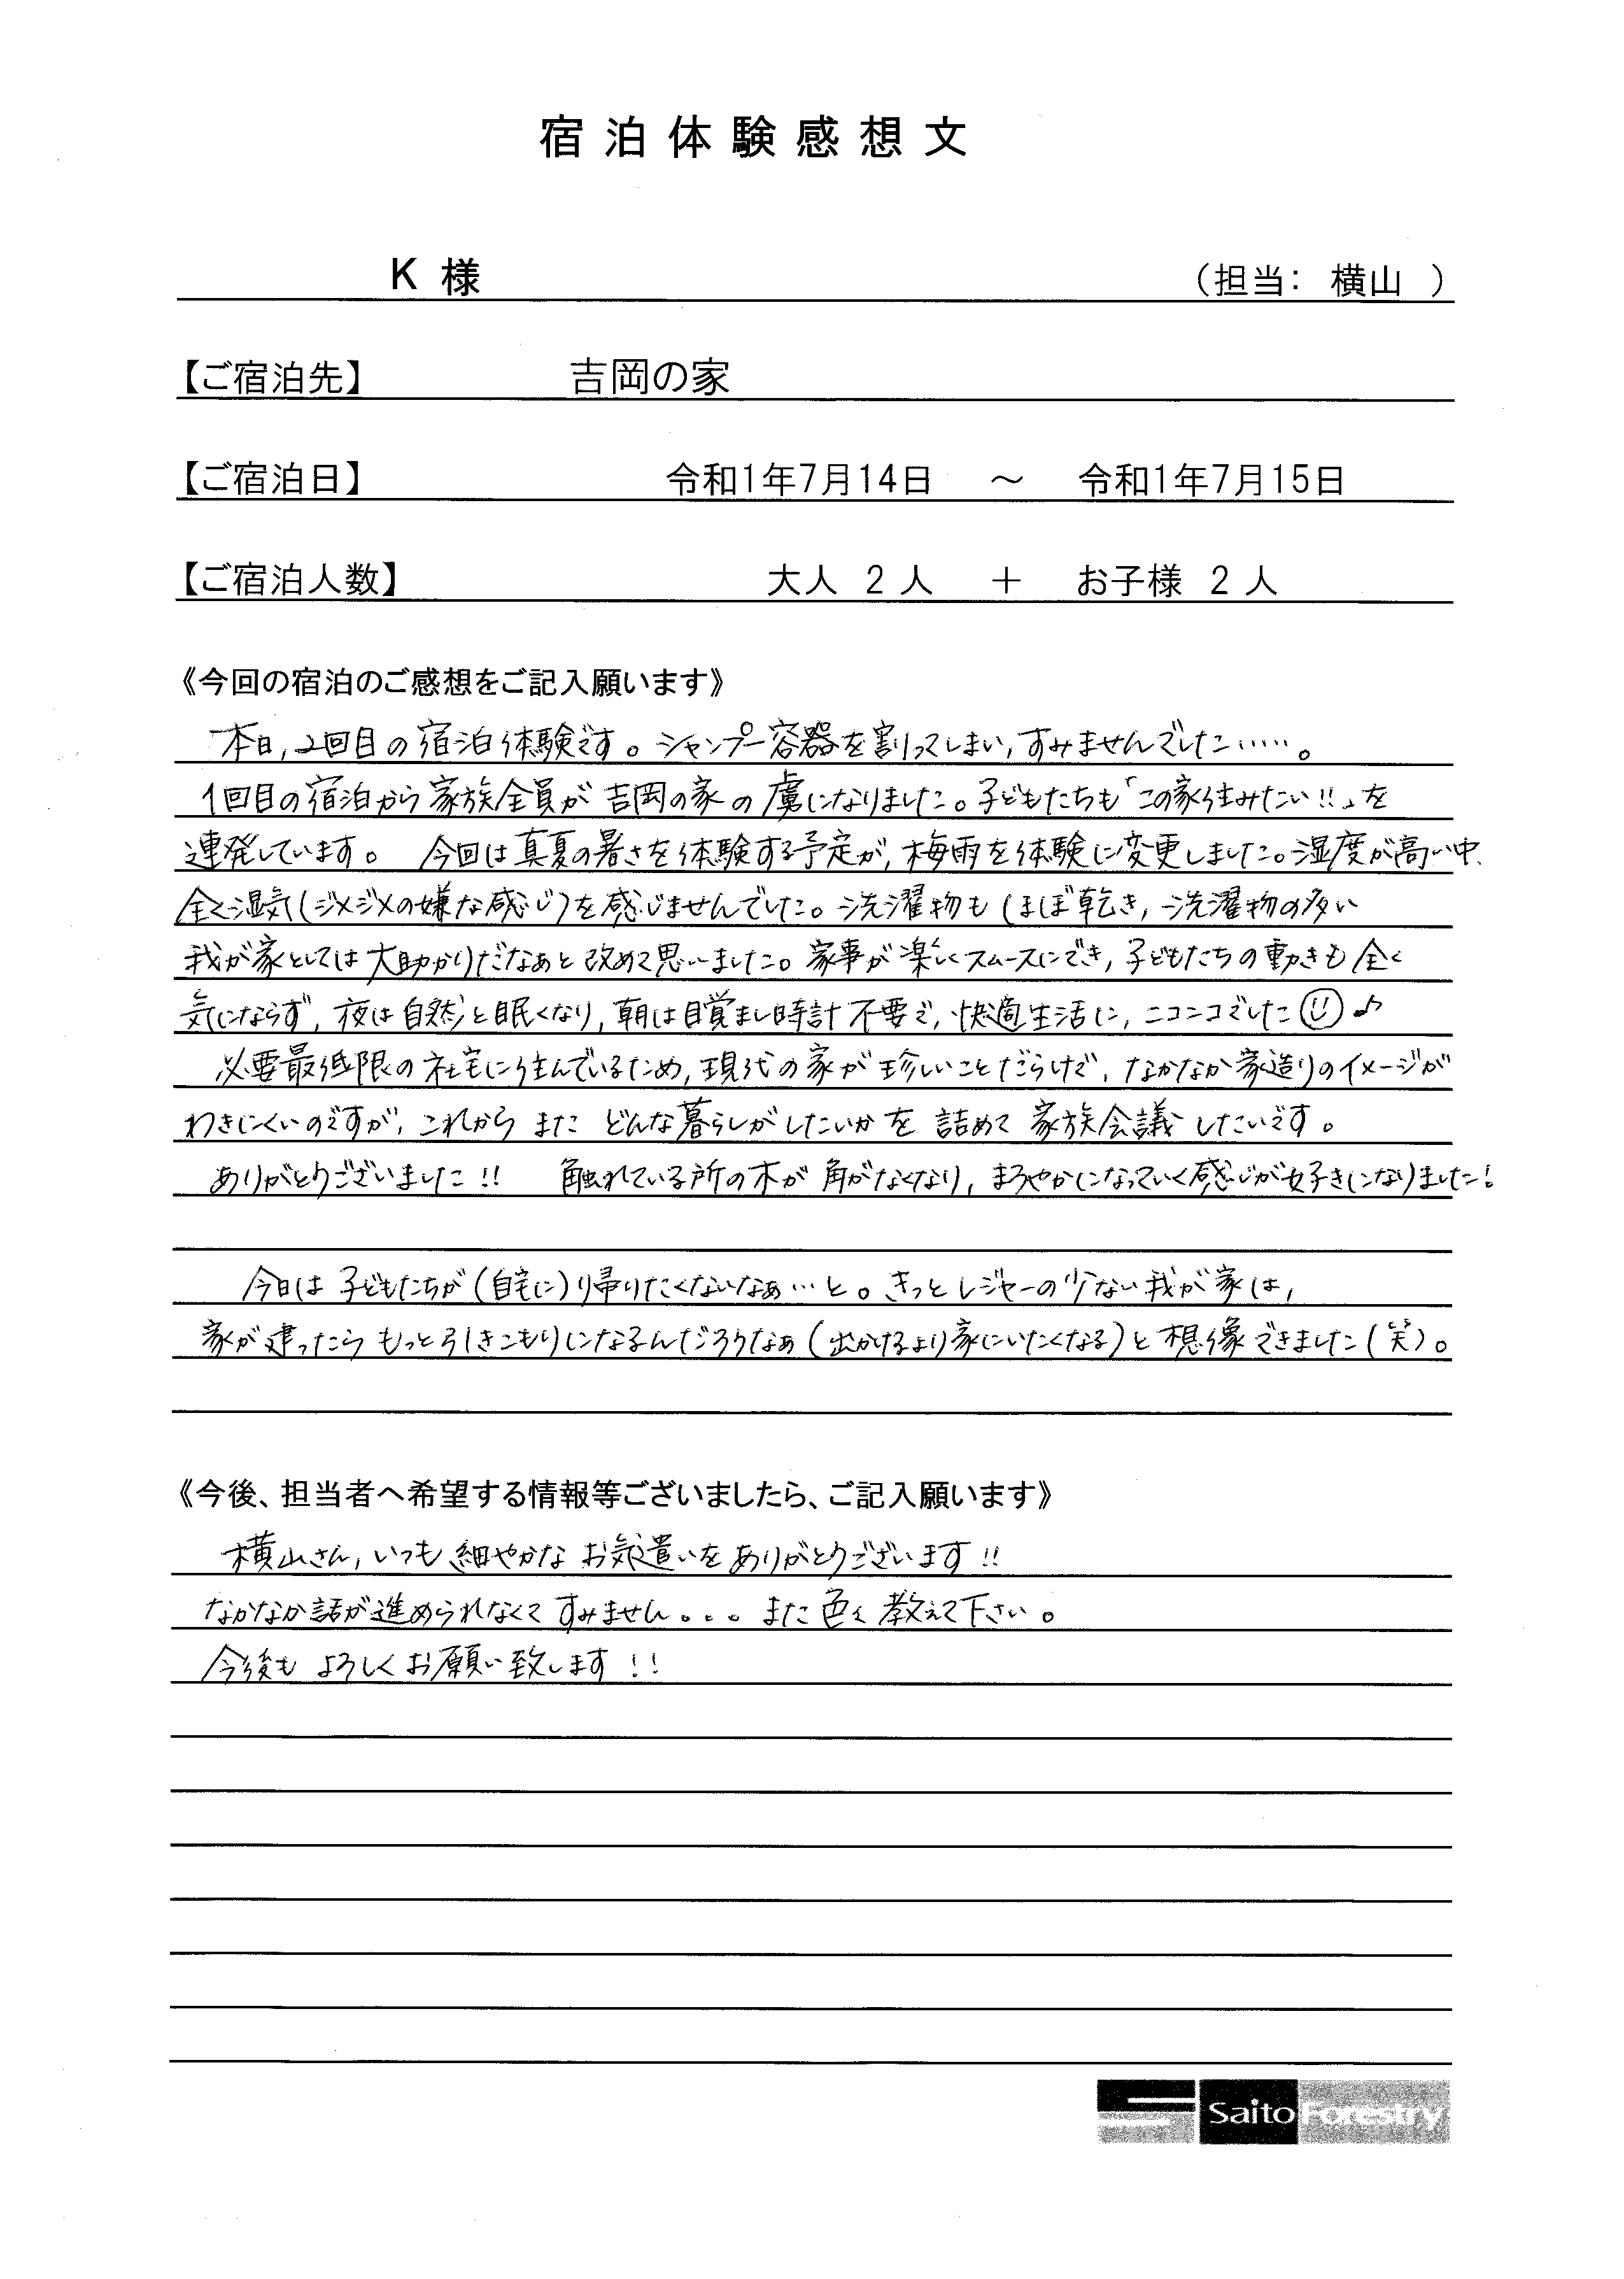 宿泊体験感想文
K 様 （担当： 横山 ）
【ご宿泊先】 吉岡の家
【ご宿泊日】 令和1年7月14日 ～ 令和1年7月15日
【ご宿泊人数】 大人 2 人 ＋ お子様 2 人
《今回の宿泊のご感想をご記入願います》
本日,2回目の宿泊体験です。シャンプー容器を割ってしまい,すみませんでした……。
1回目の宿泊から家族全員が吉岡の家の虜になりました。子どもたちも「この家住みたい!!」を
連発しています。 今回は真夏の暑さを体験する予定が,梅雨を体験に変更しました。湿度が高い中、
全く湿気(ジメジメの嫌な感じ)を感じませんでした。洗濯物もほぼ乾き,洗濯物の多い
我が家としては大助かりだなぁと改めて思いました。家事が楽しくスムースにでき,子どもたちの動きも全く
気にならず,夜は自然と眠くなり,朝は目覚まし時計不要で,快適生活に,ニコニコでした☺♪
必要最低限の社宅に住んでいるため,現代の家が珍しいことだらけで,なかなか家造りのイメージが
わきにくいのですが,これからまたどんな暮らしがしたいかを詰めて家族会議したいです。
ありがとうございました!! 触れている所の木が角がなくなり,まろやかになっていく感じが好きになりました!
今日は子どもたちが(自宅に)帰りたくないなぁ…と。きっとレジャーの少ない我が家は,
家が建ったらもっと引きこもりになるんだろうなぁ(出かけるより家にいたくなる)と想像できました(笑)。
《今後、担当者へ希望する情報等ございましたら、ご記入願います》
横山さん,いつも細やかなお気遣いをありがとうございます!!
なかなか話が進められなくてすみません。。。また色々教えて下さい。
今後もよろしくお願い致します!!
Saito Forestry